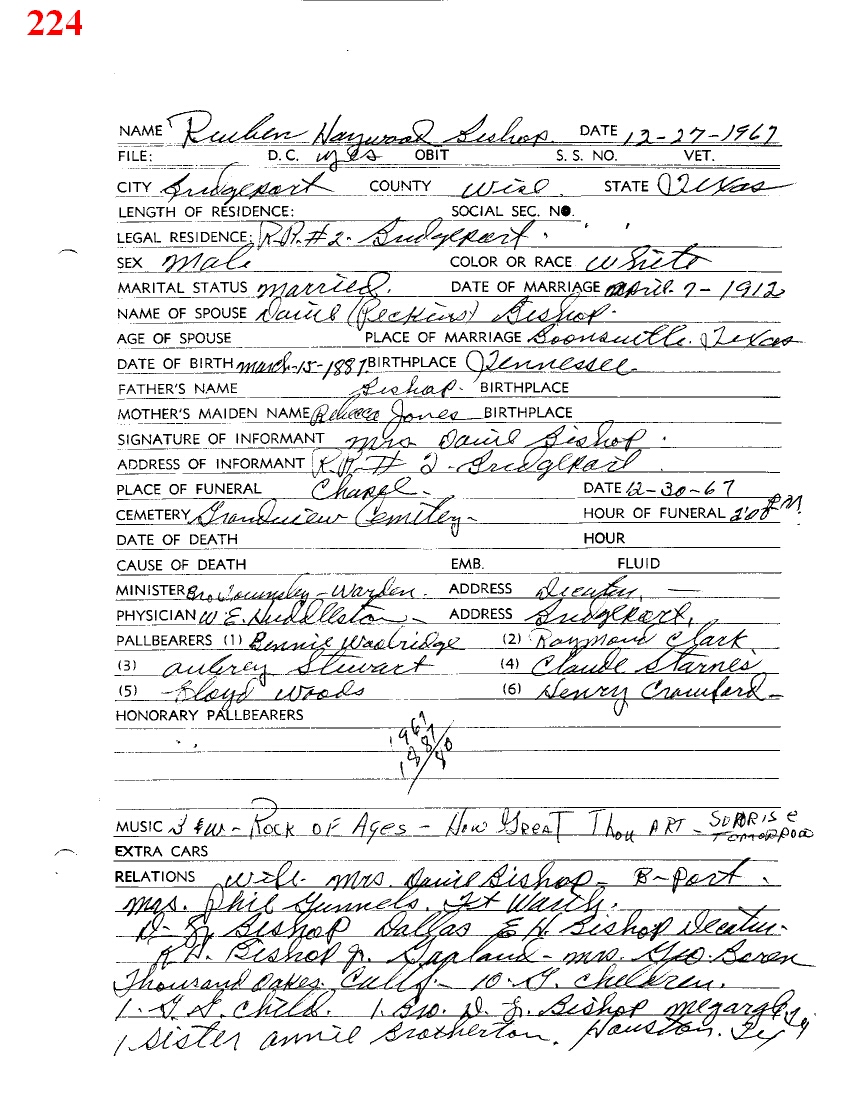 224
NAME Reuben Haywood Bishop. DATE 12-27-1967
FILE: D. C. yes OBIT S. S. NO. VET.
CITY Bridgeport COUNTY Wise STATE Texas
LENGTH OF RESIDENCE: SOCIAL SEC. NO.
LEGAL RESIDENCE: R.R. #2. Bridgeport.
SEX Male COLOR OR RACE White
MARITAL STATUS married. DATE OF MARRIAGE April 7-1912
NAME OF SPOUSE (Peckins) Bishop.
AGE OF SPOUSE PLACE OF MARRIAGE Boonsville. Texas
DATE OF BIRTH March-15-1887 BIRTHPLACE Tennessee
FATHER'S NAME Bishop. BIRTHPLACE
MOTHER'S MAIDEN NAME Rebecca Jones BIRTHPLACE
SIGNATURE OF INFORMANT Mrs Bishop.
ADDRESS OF INFORMANT R.R. # 2. Bridgeport
PLACE OF FUNERAL Chapel- DATE 12-30-67
CEMETERY Grandview Cemetery- HOUR OF FUNERAL 2:00 PM.
DATE OF DEATH HOUR
CAUSE OF DEATH EMB. FLUID
MINISTER Bro Townsley-Warden. ADDRESS Decatur, —
PHYSICIAN W. E. Huddleston- ADDRESS Bridgeport,
PALLBEARERS (1) Bennie Woolridge (2) Raymond Clark
(3) Aubrey Stewart (4) Claude Starnes
(5) Floyd Woods (6) Henry Crawford-
HONORARY PALLBEARERS
1967
1887
80
MUSIC - Rock of Ages - How Great Thou Art - Sunrise Tomorrow
EXTRA CARS
RELATIONS Wife- Mrs. Bishop- B-Port.
Mrs. Phil Gunnels. Ft Worth.
Bishop Dallas E H Bishop Decatur-
R.H. Bishop Jr. Garland- Mrs. Geo. Boren
Thousand Oakes. Calif- 10. G. Children.
1. G. G. Child. 1. Bro. D. J. Bishop Megargle, Tx
1 Sister Annie Brotherton. Houston. Tex